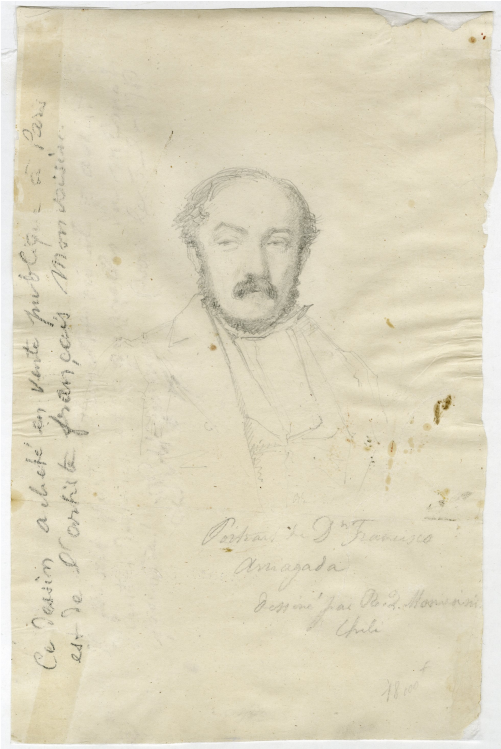 Ce dessin acheté en vente publique à Paris
est de l'artiste français Monvoisin.
Portrait de Dn Francisco
Arriagada
dessiné par Rd. Q. Monvoisin
Chili